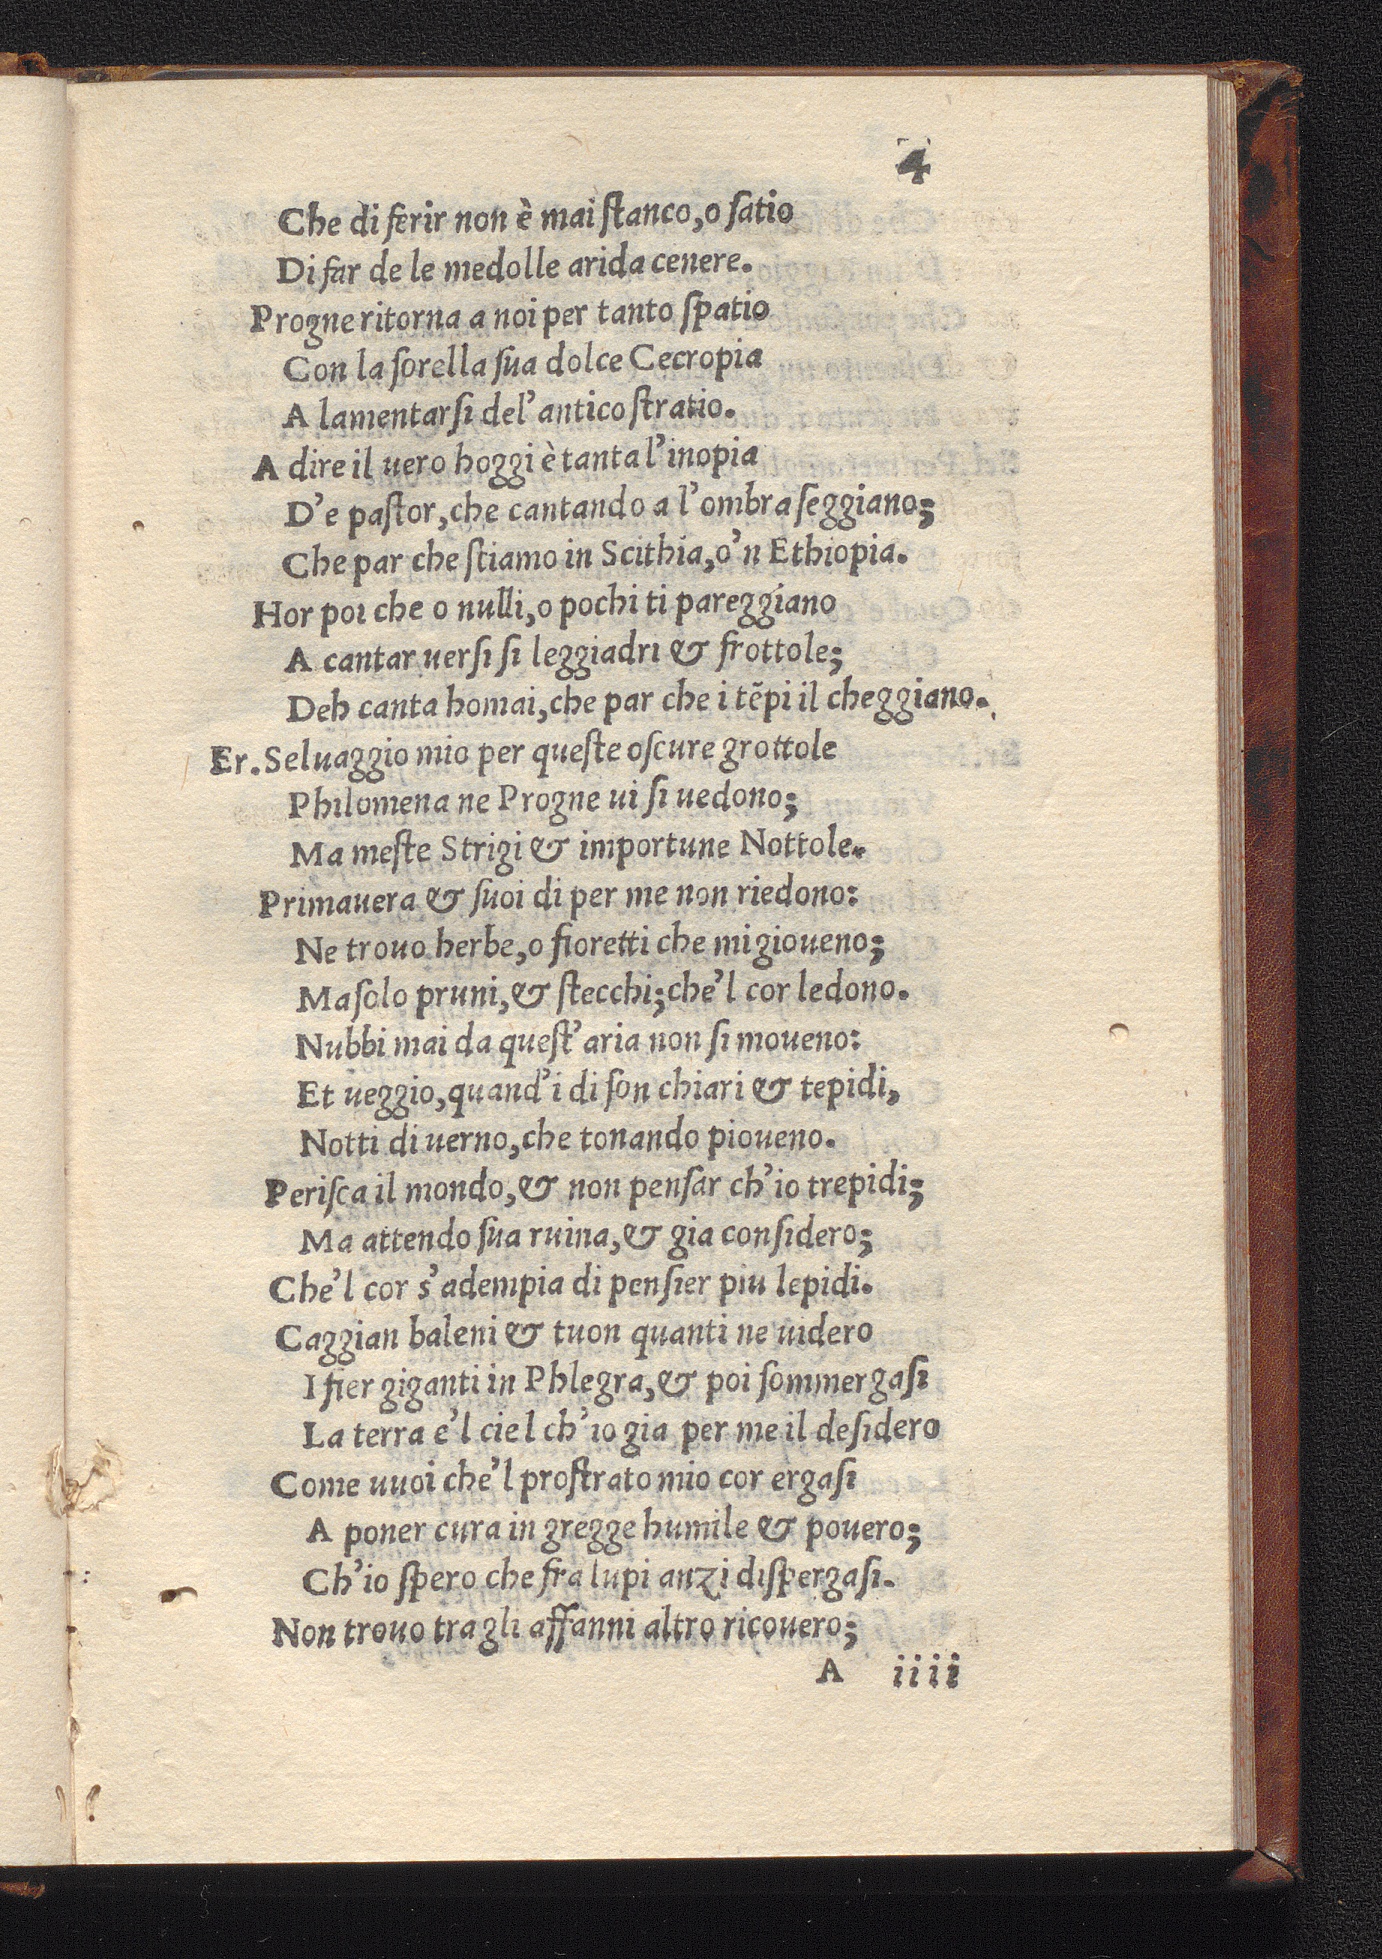 4
Che di ferir non è mai ſtanco,o ſatio
Di far de le medolle arida cenere.
Progne ritorna a noi per tanto ſpatio
Con la ſorella ſua dolce Cecropia
A lamentarſi del'antico ſtratio.
A dire il uero hoggi è tanta l'inopia
D'e paſtor,che cantando a l'ombra ſeggiano;
Che par che ſtiamo in Scithia,o'n Ethiopia.
Hor poi che o nulli,o pochi ti pareggiano
A cantar uerſi ſi leggiadri & frottole;
Deh canta homai,che par che i tẽpi il cheggiano.
Er. Seluaggio mio per queſte oſcure grottole
Philomena ne Progne ui ſi uedono;
Ma meſte Strigi & importune Nottole.
Primauera & ſuoi di per me non riedono:
Ne trouo herbe,o fioretti che mi gioueno;
Ma ſolo pruni,& ſtecchi;che'l cor ledono.
Nubbi mai da queſt'aria non ſi moueno:
Et ueggio,quand'i di ſon chiari & tepidi,
Notti di uerno,che tonando pioueno.
Periſca il mondo,& non penſar ch'io trepidi;
Ma attendo ſua ruina,& gia conſidero;
Che'l cor s'adempia di penſier piu lepidi.
Caggian baleni & tuon quanti ne uidero
I fier giganti in Phlegra,& poi ſommergaſi
La terra e'l ciel ch'io gia per me il deſidero
Come uuoi che'l proſtrato mio cor ergaſi
A poner cura in gregge humile & pouero;
Ch'io ſpero che fra lupi anzi diſpergaſi.
Non trouo tra gli affanni altro ricouero;
A iiii